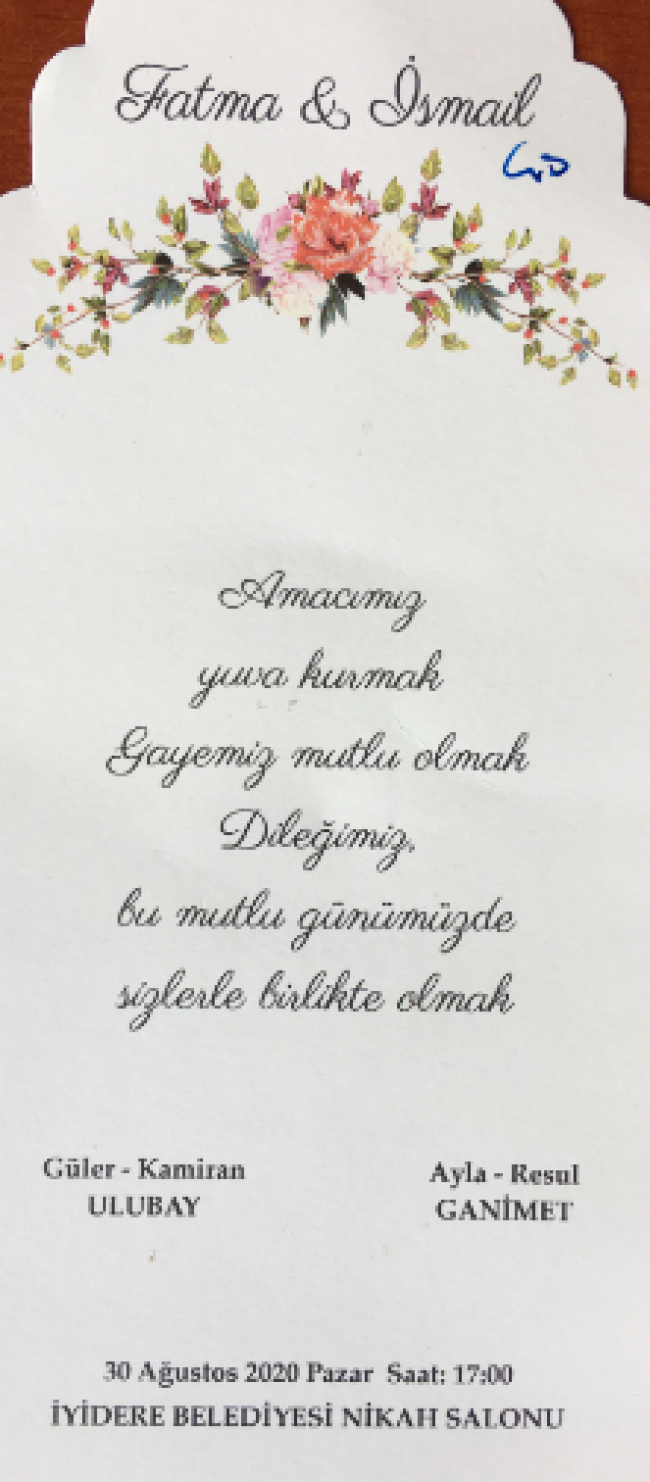 Fatma & İsmail
Amacımız
yuva kurmak
Gayemiz mutlu olmak
Dileğimiz,
bu mutlu günümüzde
sizlerle birlikte olmak
Güler - Kamiran
ULUBAY
Ayla - Resul
GANİMET
30 Ağustos 2020 Pazar Saat: 17:00
İYİDERE BELEDİYESİ NİKAH SALONU